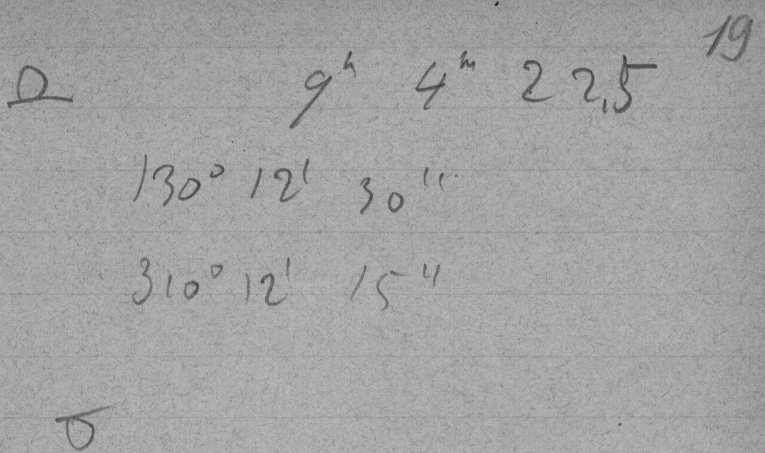 19
9ʰ 4ᵐ 22,5
130° 12' 30"
310° 12' 15"